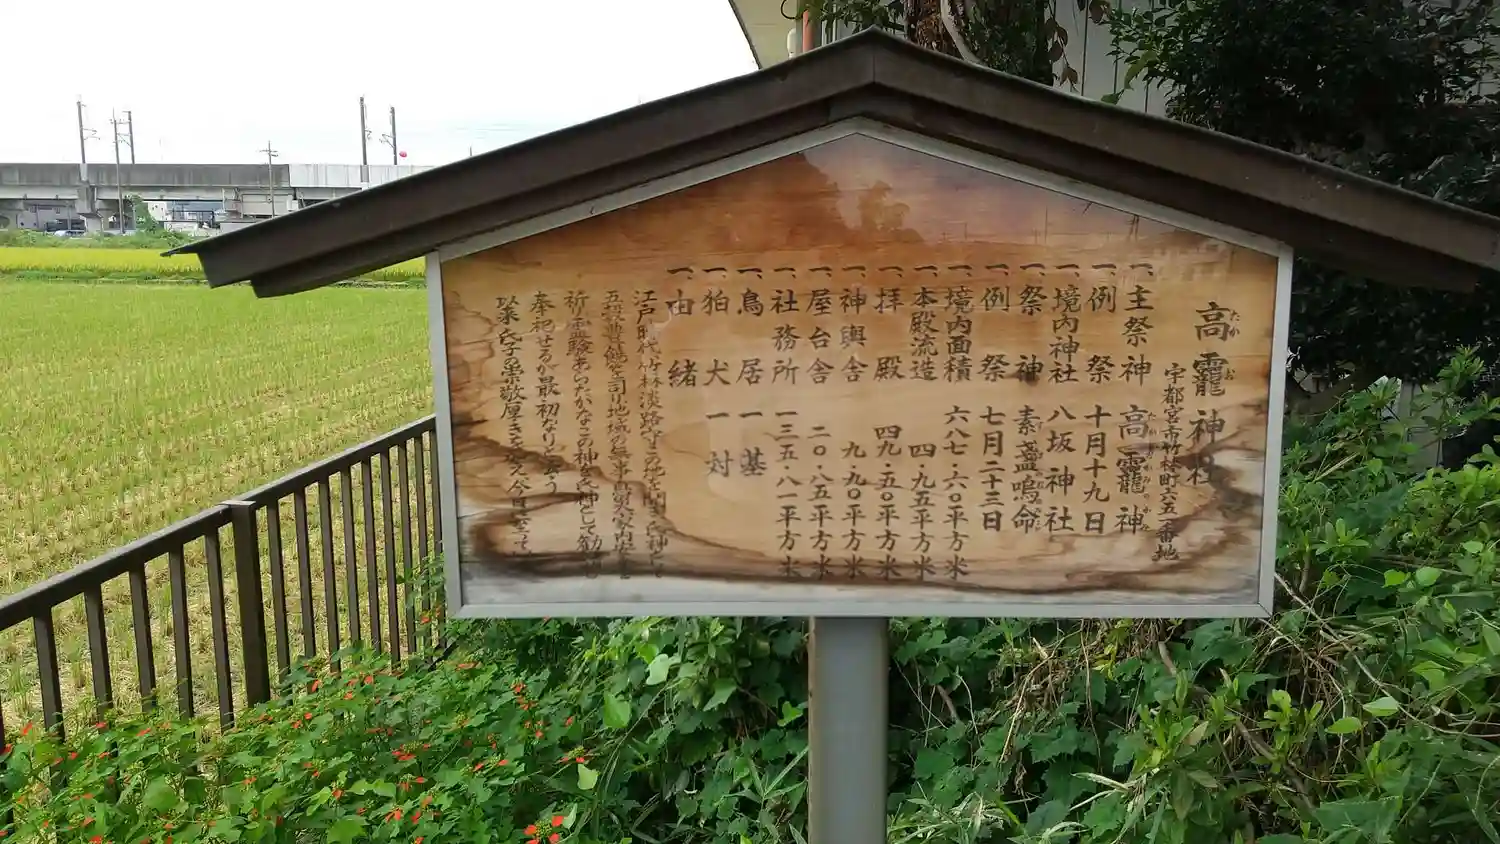 高龗神社
たか お
宇都宮市竹林町六五一番地
一、主祭神 高龗神
一、例祭 十月十九日
一、境内神社 八坂神社
一、祭神 素盞嗚命
一、例祭 七月二十三日
一、境内面積 六八七・六〇平方米
一、本殿流造 四・九五平方米
一、拝殿 四九・五〇平方米
一、神輿舎 九・九〇平方米
一、屋台舎 二〇・八五平方米
一、社務所 一三五・八一平方米
一、鳥居 一基
一、狛犬 一対
一、由緒
江戸時代竹林淡路守この地を開き氏神として
五穀豊饒を司り地域の無事平穏家内安全を
祈り霊験あらたかなこの神を氏神として勧請し
奉祀せるが最初なりと云う
以来氏子の崇敬厚きを加え今日に至って